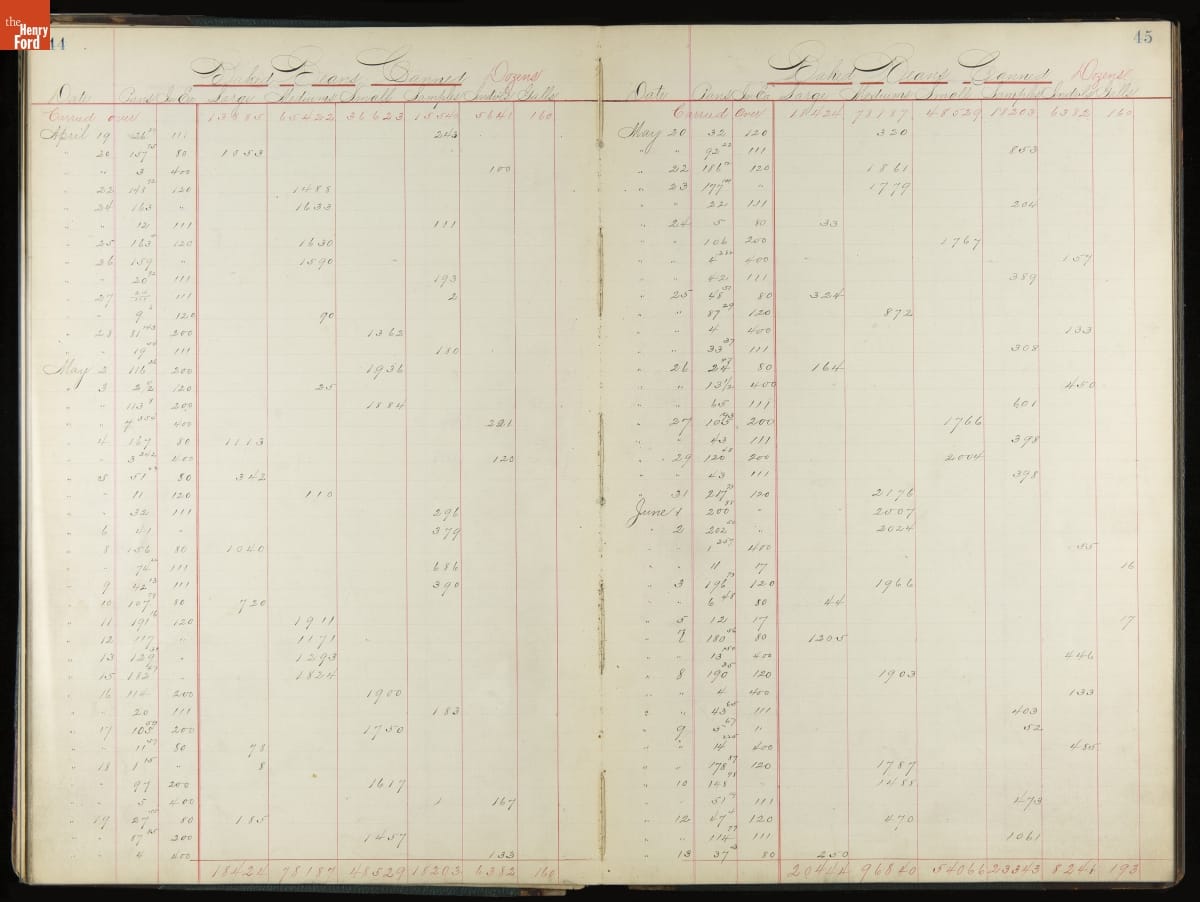 the
Henry
Ford
44
Baked Beans Canned Dozens
Date Pans In Ea Large Mediums Small Samples Indvls Galls
Carried over 13885 65422 36623 15540 5641 160
April 19 26 111 243
" 20 157 80 1053
" 3 400 100
" 22 148 120 1488
" 24 163 " 1633
" " 12 111 111
" 25 163 120 1630
" 26 159 " 1590
" 20 111 193
" 27 111 2
" 9 120 90
" 28 81 200 1362
" " 19 111 180
May 2 116 200 1936
" 3 2 1/2 120 25
" " 113 200 1884
" " 7 400 221
" 4 167 80 1113
" 3 400 120
" 5 51 80 342
" 11 120 110
" 32 111 296
" 6 41 " 379
" 8 156 80 1040
" 74 111 686
" 9 42 111 390
" 10 107 80 720
" 11 191 120 1911
" 12 117 " 1171
" 13 129 " 1293
" 15 182 " 1824
" 16 114 200 1900
" " 20 111 183
" 17 105 200 1750
" " 11 80 78
" 18 1 " 8
" 97 200 1617
" 5 400 1 167
" 19 27 80 185
" " 87 200 1457
" " 4 400 133
18424 78187 48529 18203 6382 160
45
Baked Beans Canned Dozens
Date Pans In Ea Large Mediums Small Samples Indvls Galls
Carried Over 18424 78187 48529 18203 6382 160
May 20 32 120 320
" " 92 111 853
" 22 186 120 1861
" 23 177 " 1779
" " 22 111 204
" 24 5 80 33
" " 106 200 1767
" " 4 400 157
" " 42 111 389
" 25 48 80 324
" " 87 120 872
" " 4 400 133
" " 33 111 308
" 26 24 80 164
" " 13 1/2 400 450
" " 65 111 601
" 27 105 200 1766
" " 43 111 398
" 29 120 200 2004
" " 43 111 398
" 31 217 120 2176
June 1 200 " 2007
" 2 202 " 2024
" " 1 400 55
" " 11 17 16
" 3 196 120 1966
" " 6 80 44
" 5 12 17 17
" 7 180 80 1205
" " 13 400 446
" 8 190 120 1903
" " 4 400 133
" " 43 111 403
" 9 5 " 52
" " 14 400 485
" " 178 120 1787
" 10 148 " 1488
" " 51 111 473
" 12 47 120 470
" " 114 111 1061
" 13 37 80 250
20444 96840 54066 23343 8241 193